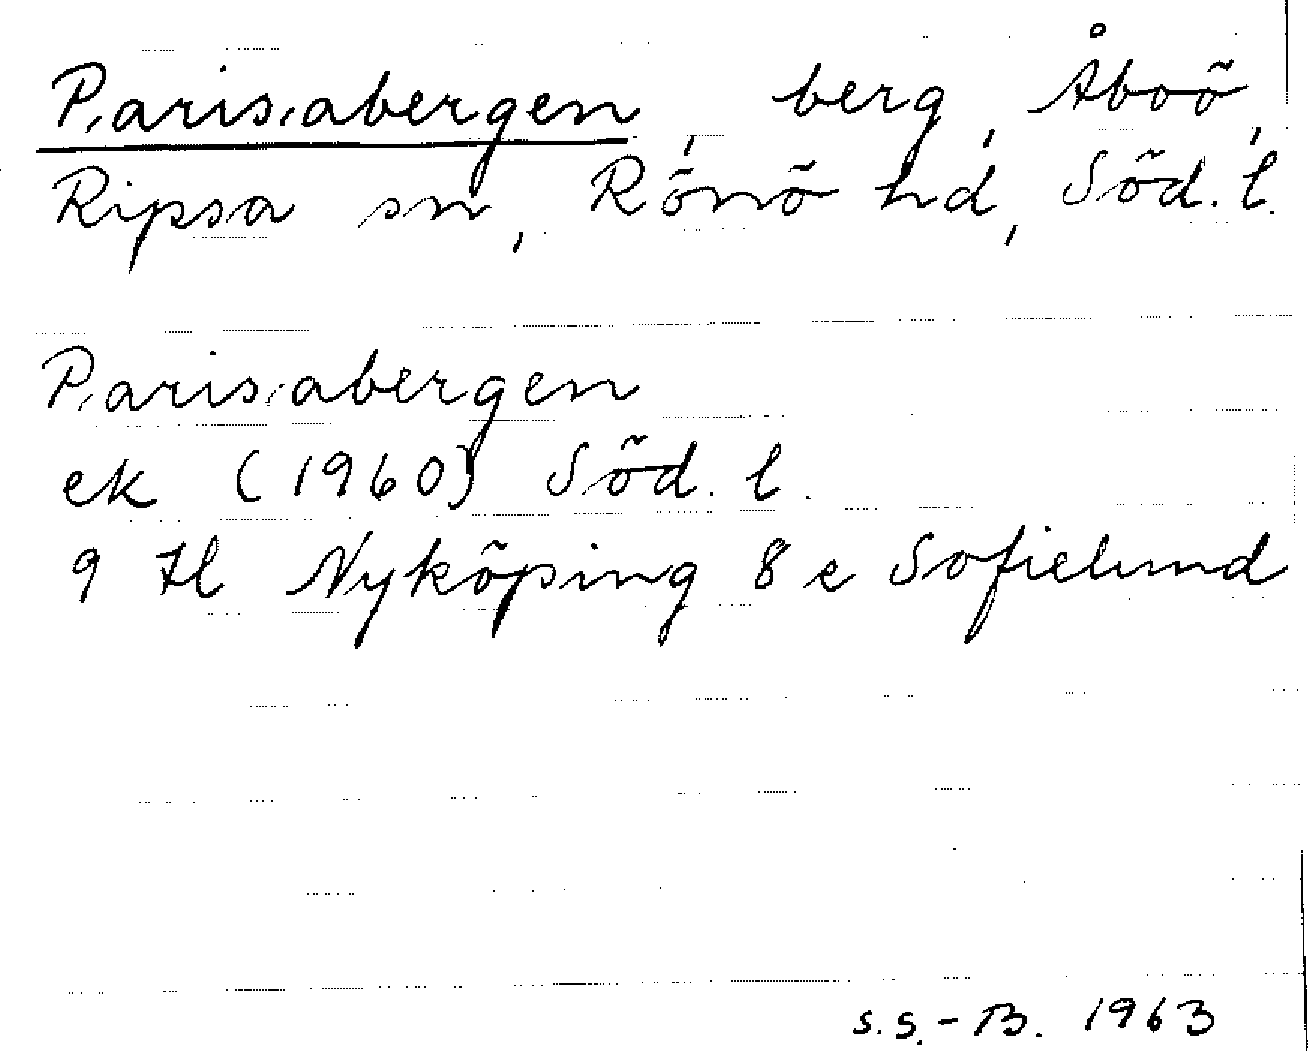 Parisabergen, berg, Åboö,
Ripsa sn, Rönö hd, Söd. l.
Parisabergen
ek (1960) Söd. l.
9 Hl Nyköping 8 e Sofielund
S.S.-B. 1963